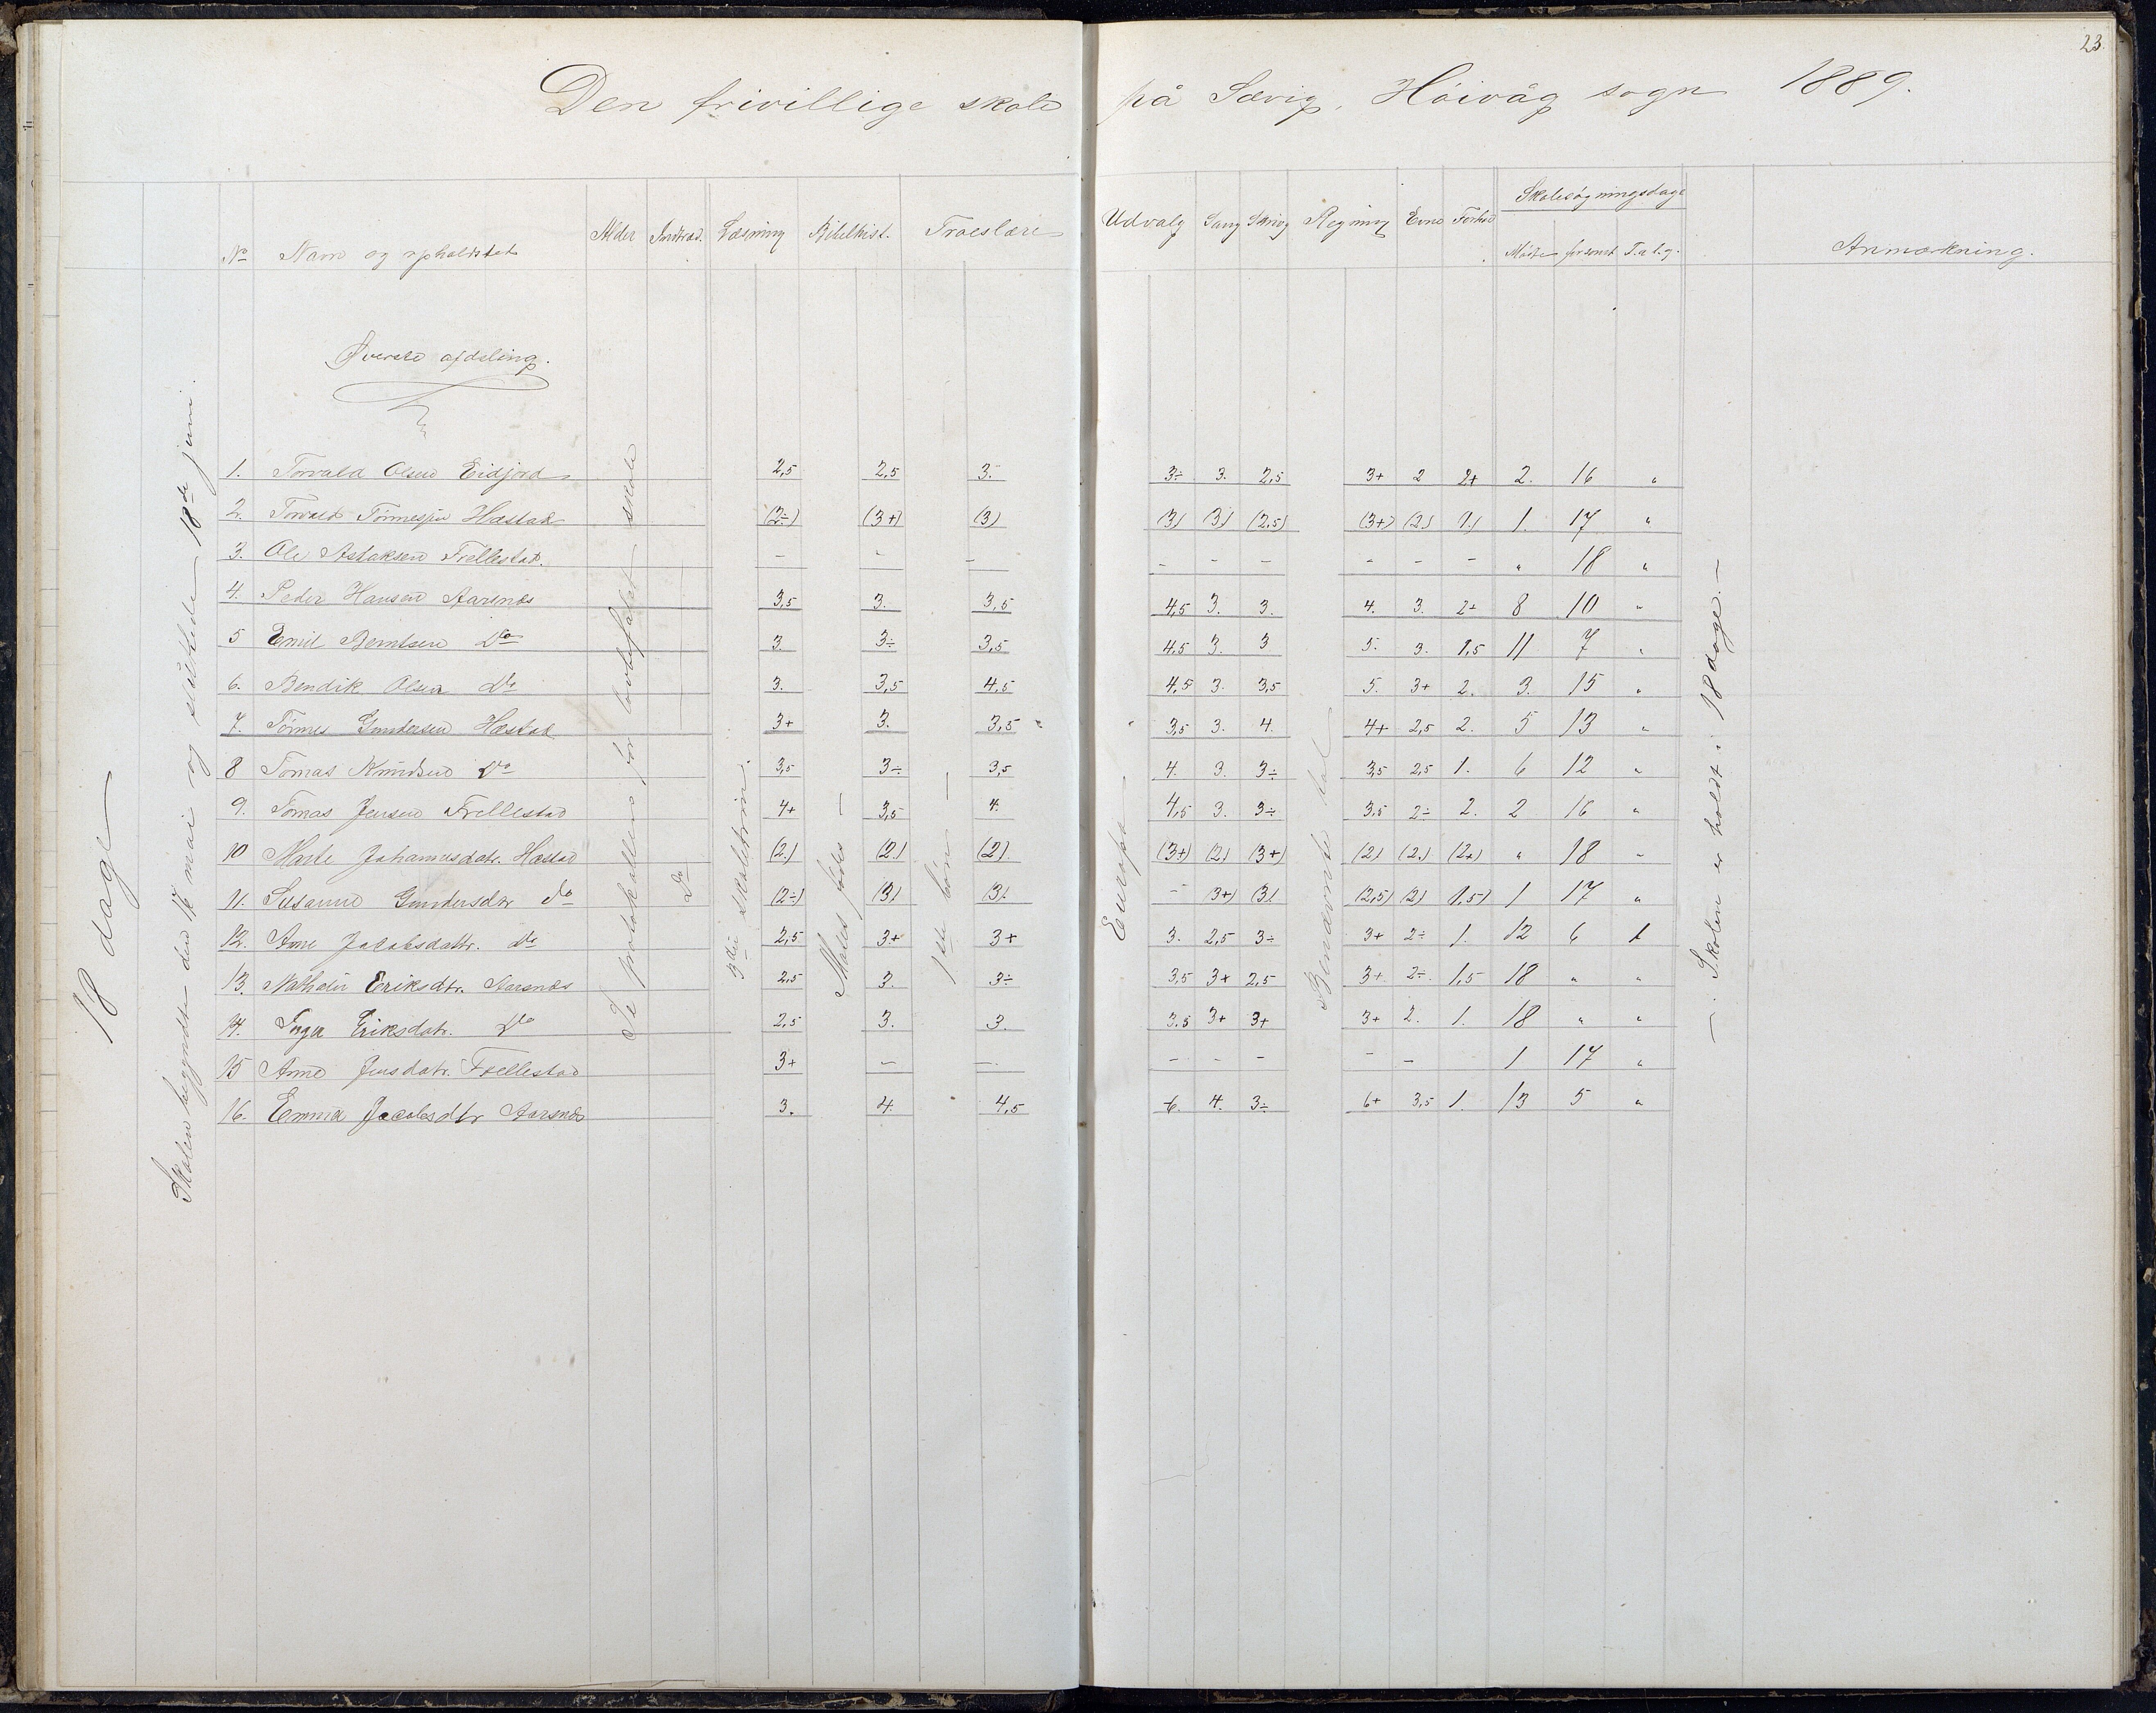 23.
Den frivillige skole på Sævig, Höivåg sogn 1889.
No Navn og opholdsted Alder Indtræd. Læsning Bibelhist. Troeslære Udvalg Sang Skrivg Regning Evne Forhold Skolesøgningsdage Anmærkning.
Mødte forsömt T.a.l.g.
Øverste afdeling.
1. Torvald Olsen Eidjord 2,5 2,5 3. 3÷ 3. 2,5 3+ 2 2+ 2. 16 "
2. Torvald Tönnesen Hæstad (2÷) (3+) (3) (3) (3) (2,5) (3+) (2.) 1.) 1. 17 "
3. Ole Aslaksen Trellestad. - - - - - - - - - " 18 "
4. Peder Hansen Aarsnæs 3,5 3. 3,5 4,5 3. 3. 4. 3. 2+ 8 10 "
5 Emil Berntsen Do 3. 3÷ 3,5 4,5 3. 3 5. 3. 1,5 11 7 "
6. Bendik Olsen do 3. 3,5 4,5 4,5 3. 3,5 5. 3+ 2. 3. 15 "
7. Tönnes Gundersen Hæstad 3+ 3. 3,5 3,5 3. 4. 4+ 2,5 2. 5 13 "
8 Tomas Knudsen Do 3,5 3÷ 3,5 4. 3. 3÷ 3,5 2,5 1. 6 12 "
9. Tomas Jensen Trellestad 4+ 3,5 4. 4,5 3. 3÷ 3,5 2÷ 2. 2 16 "
10 Marte Johannesdatr. Hæstad (2.) (2.) (2). (3+) (2) (3+) (2) (2.) (2+) " 18 "
11. Susanne Gundersdtr do (2÷) (3) (3). - (3+) (3) (2,5) (2) 1,5) 1 17 "
12. Ane Jacobsdattr. do 2,5 3+ 3+ 3. 2,5 3÷ 3+ 2÷ 1. 12 6 1
13. Nathalie Eriksdtr. Aarsnæs 2,5 3. 3÷ 3,5 3+ 2,5 3+ 2÷ 1,5 18 " "
14. Inger Eriksdatr. Do 2,5 3. 3. 3,5 3+ 3+ 3+ 2. 1. 18 " "
15 Anne Jensdatr. Trellestad 3+ - - - - - - - 1 17 "
16. Emma Jacobsdtr Aarsnæs 3. 4. 4,5 6. 4. 3÷ 6+ 3,5 1. 13 5 "
18 dage
Skolen begyndte den mai og sluttede 18de juni.
Se protokollen for lovbefalet skole
Do
3die skoletrin.
Moses födes
1ste bön
Europa
Benævnte tal
Skolen er holdt i 18 dage.